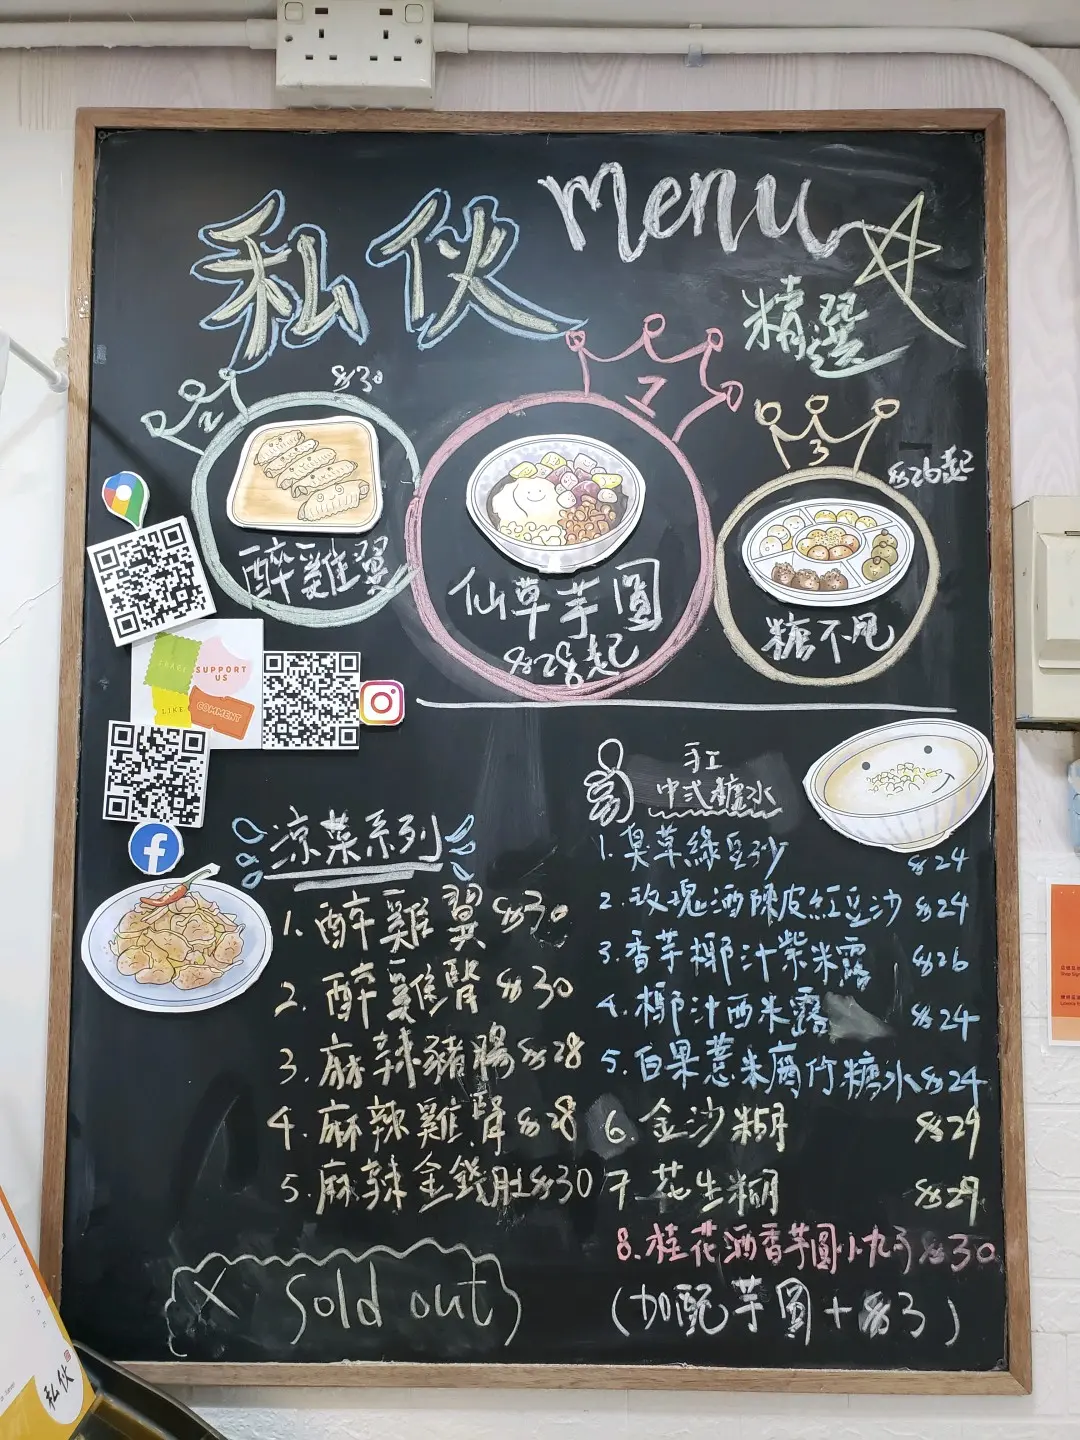 私伙 Menu
精選
2
$30
醉雞翼
1
仙草芋圓
$28起
3
$26起
糖不甩
SHARE
SUPPORT
US
LIKE
COMMENT
涼菜系列
1. 醉雞翼 $30
2. 醉雞腎 $30
3. 麻辣豬腸 $28
4. 麻辣雞腎 $28
5. 麻辣金錢肚 $30
手工
中式糖水
1. 臭草綠豆沙 $24
2. 玫瑰酒陳皮紅豆沙 $24
3. 香芋椰汁紫米露 $26
4. 椰汁西米露 $24
5. 白果薏米腐竹糖水 $24
6. 金沙糊 $29
7 花生糊 $29
8. 桂花酒香芋圓小丸子 $30
(加配芋圓+$3)
X Sold out
私伙